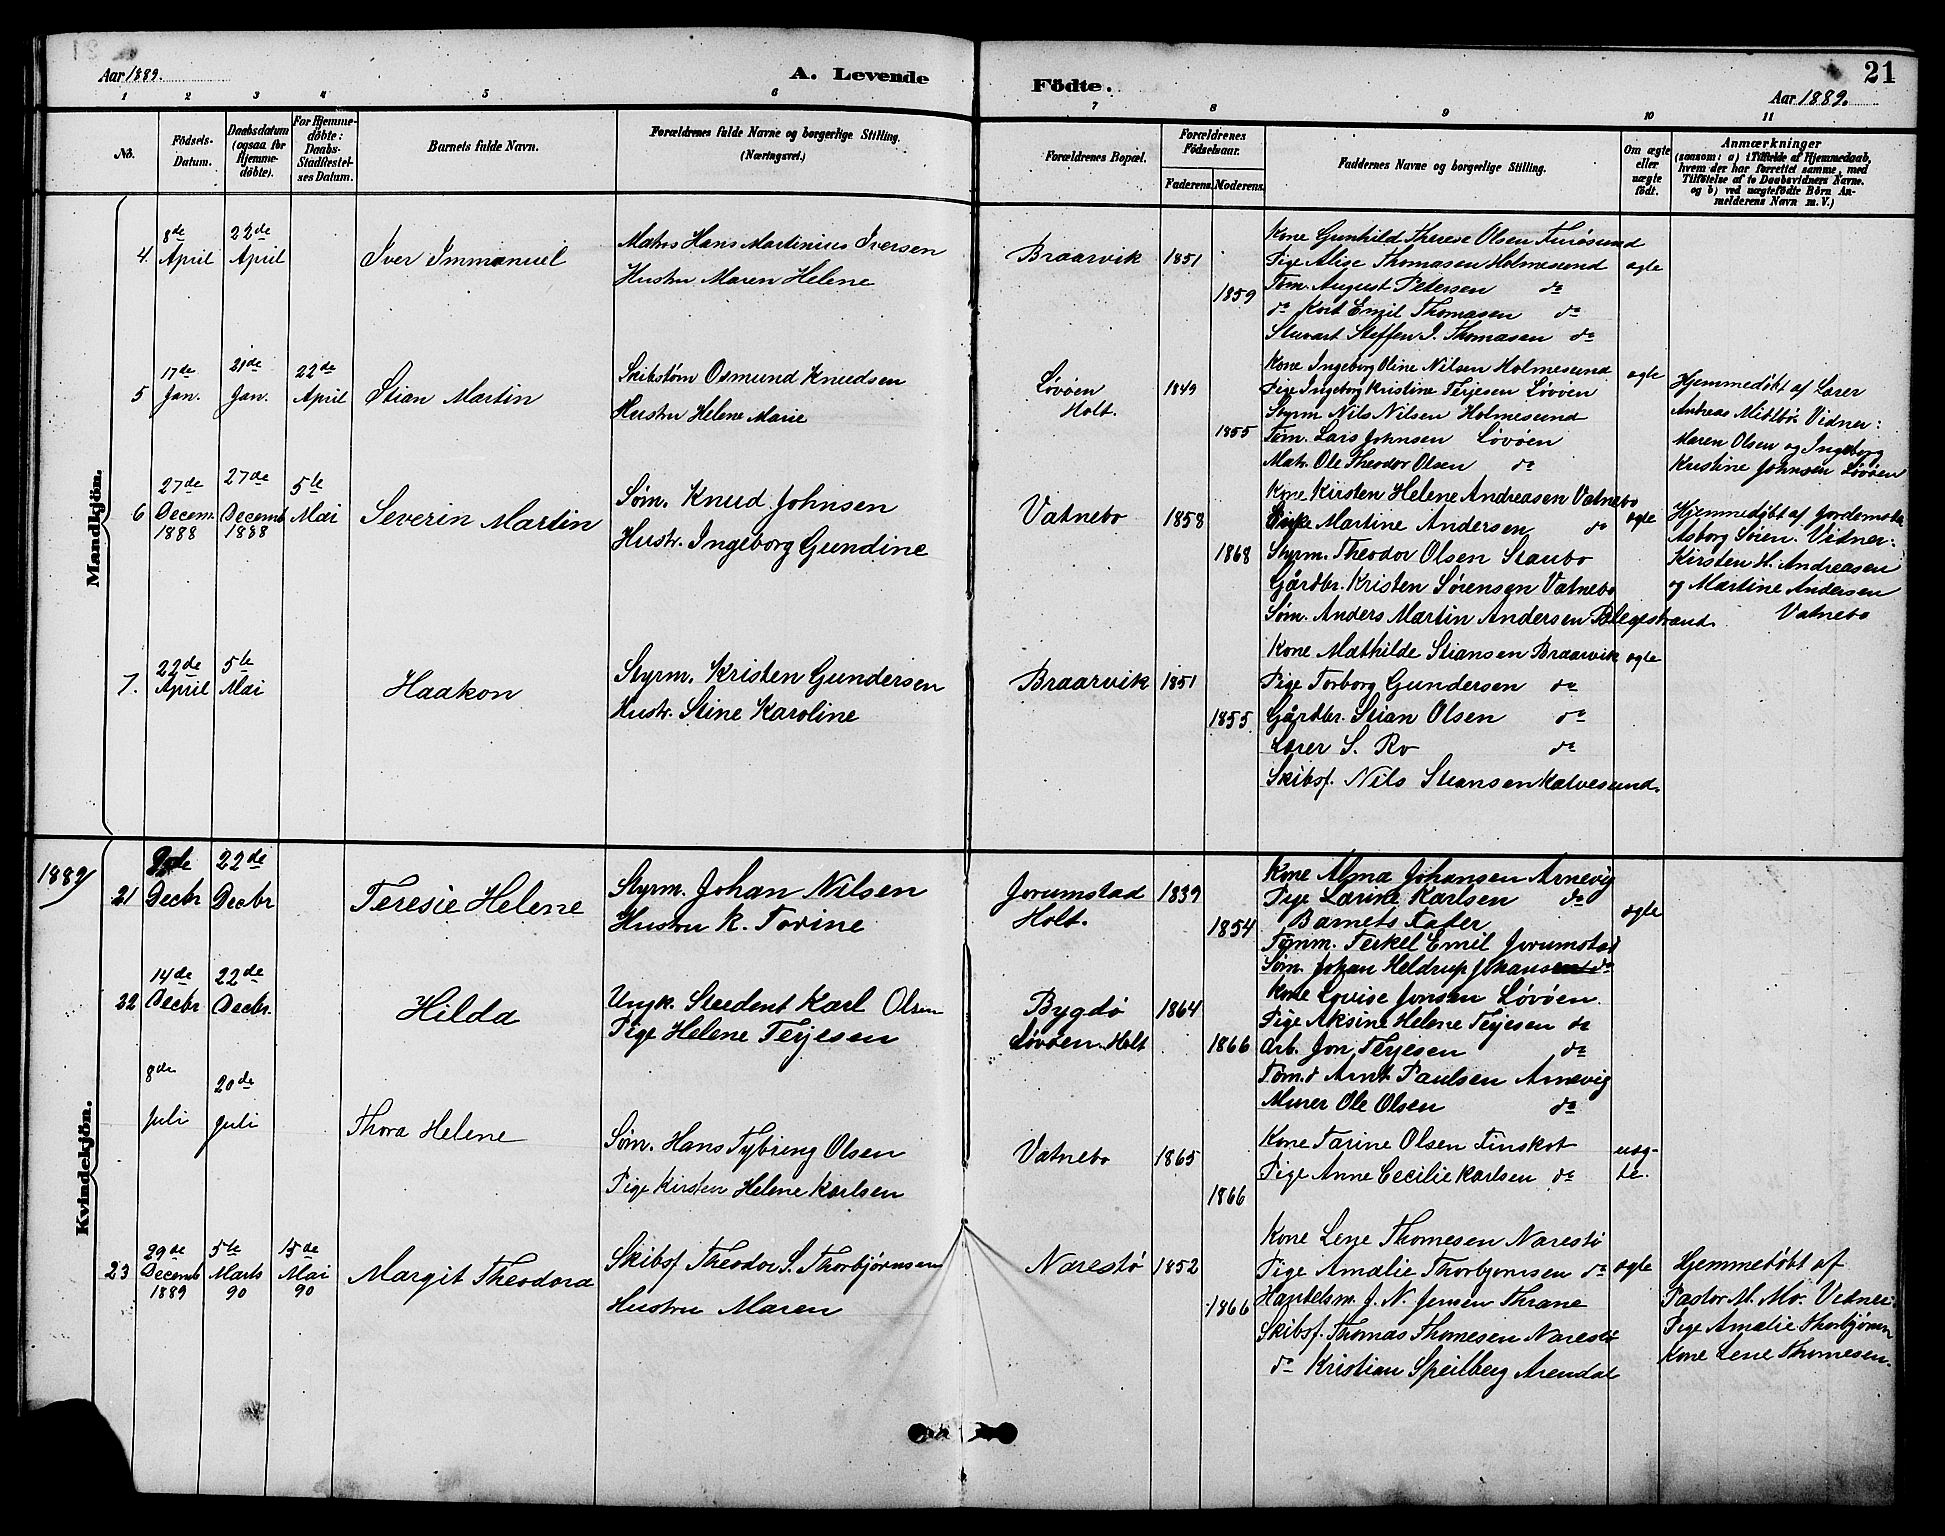 Aar 1889.
A. Levende
Födte.
21
Aar 1889.
1 2 3 4 5 6 7 8 9 10 11
No.
Födsels-
Datum.
Daabsdatum
(ogsaa for
Hjemme-
döbte).
For Hjemme-
döbte:
Daabs-
Stadfæstel-
ses Datum.
Barnets fulde Navn.
Forældrenes fulde Navne og borgerlige Stilling.
(Næringsvei.)
Forældrenes Bopæl.
Forældrenes
Födselsaar.
Faderens. Moderens.
Faddernes Navne og borgerlige Stilling.
Om ægte
eller
uægte
födt.
Anmærkninger
(saasom: a) i Tilfælde af Hjemmedaab,
hvem der har forrettet samme, med
Tilföielse af to Daabsvidners Navne.
og b) ved uægtefödte Börn An-
melderens Navn m. V.)
Mandkjön.
4.
8de
April
22de
April
Iver Immanuel
Matros Hans Martinius Iversen
Hustru Maren Helene
Braarvik
1851
1859
Kone Gunhild Therese Olsen Furøsund
Pige Alise Thomasen Holmesund
Tøm. August Pedersen do
do Kort Emil Thomasen do
Stuvart Steffen I. Thomasen do
ægte
5
17de
Jan.
21de
Jan.
22de
April
Stian Martin
Skibstøm Osmund Knudsen
Hustru Helene Marie
Løvøen
Holt.
1849
1855
Kone Ingeborg Oline Nilsen Holmesund
Pige Ingeborg Kristine Terjesen Løvøen
Styrm Nils Nilsen Holmesund
Tøm. Lars Johnsen Løvøen
Matr. Ole Theodor Olsen do
ægte
Hjemmedøbt af Lærer
Andreas Midtbø. Vidner:
Maren Olsen og Ingeborg
Kristine Johnsen Løvøen
6
27de
Decem.
1888
27de
Decemb
1888
5te
Mai
Severin Martin
Søm. Knud Johnsen
Hustr. Ingeborg Gundine
Vatnebo
1858
1868
Kone Kirsten Helene Andreasen Vatnebo
Pige Martine Andersen do
Styrm. Theodor Olsen Staubo
Gårdbr. Kristen Sørensen Vatnebo
Søm. Anders Martin Andersen Blegestrand.
ægte
Hjemmedøbt af Jordemoder
Asborg Søren. Vidner:
Kirsten H. Andreasen
og Martine Andersen
Vatnebo
7.
22de
April
5te
Mai
Haakon
Styrm. Kristen Gundersen
Hustr. Stine Karoline
Braarvik
1851
1855
Kone Mathilde Stiansen Braarvik
Pige Torborg Gundersen do
Gårdbr. Stian Olsen do
Lærer S. Ro do
Skibsf. Nils Stiansen Kalvesund.
ægte
Kvindekjön.
1889
21
Decbr
22de
Decbr
Teresie Helene
Styrm. Johan Nilsen
Hustru K. Torine
Jorumstad
Holt.
1839
1854
Kone Alma Johansen Arnevig
Pige Larine Karlsen do
Barnets Fader
Tømm. Terkel Emil Jorumstad
Søm. Johan Heldrup Johansen do
ægte
22
14de
Decbr
22de
Decbr.
Hilda
Ungk. Student Karl Olsen
Pige Helene Terjesen
Bygdø
Løvøen. Holt
1864
1866
Kone Lovise Jonsen Løvøen.
Pige Aksine Helene Terjesen do
Arb. Jon Terjesen do
Tøm. Arnt Paulsen Arnevig
Murer Ole Olsen do
8de
Juli
20de
Juli
Thora Helene
Søm. Hans Tybring Olsen
Pige Kirsten Helene Karlsen
Vatnebo
1865
1866
Kone Tarine Olsen Finskot
Pige Anne Cecilie Karlsen do
uæg-
te.
23
29de
Decemb
1889
5te
Marts
90
15de
Mai
90
Margit Theodora
Skibsf Theodor S. Thorbjørnsen
Hustru Maren
Narestø
1852
1866
Kone Lene Thomesen Narestø
Pige Amalie Thorbjørnsen do
Handelsm. J. N. Jensen Thrane
Skibsf. Thomas Thomesen Narestø
do Kristian Speilberg Arendal
ægte
Hjemmedøbt af
Pastor M. Mo. Vidner:
Pige Amalie Thorbjørnsen
Kone Lene Thomesen.